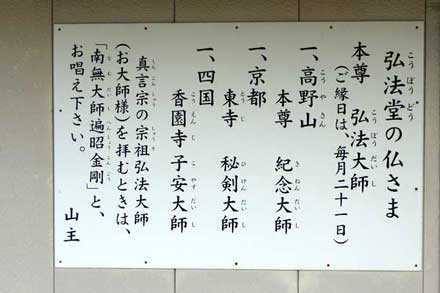 弘法堂の仏さま
本尊 弘法大師
(ご縁日は、毎月二十一日)
一、高野山
本尊 紀念大師
一、京都
東寺 秘剣大師
一、四国
香園寺 子安大師
真言宗の宗祖弘法大師
(お大師様)を拝むときは、
「南無大師遍照金剛」と、
お唱え下さい。
山主